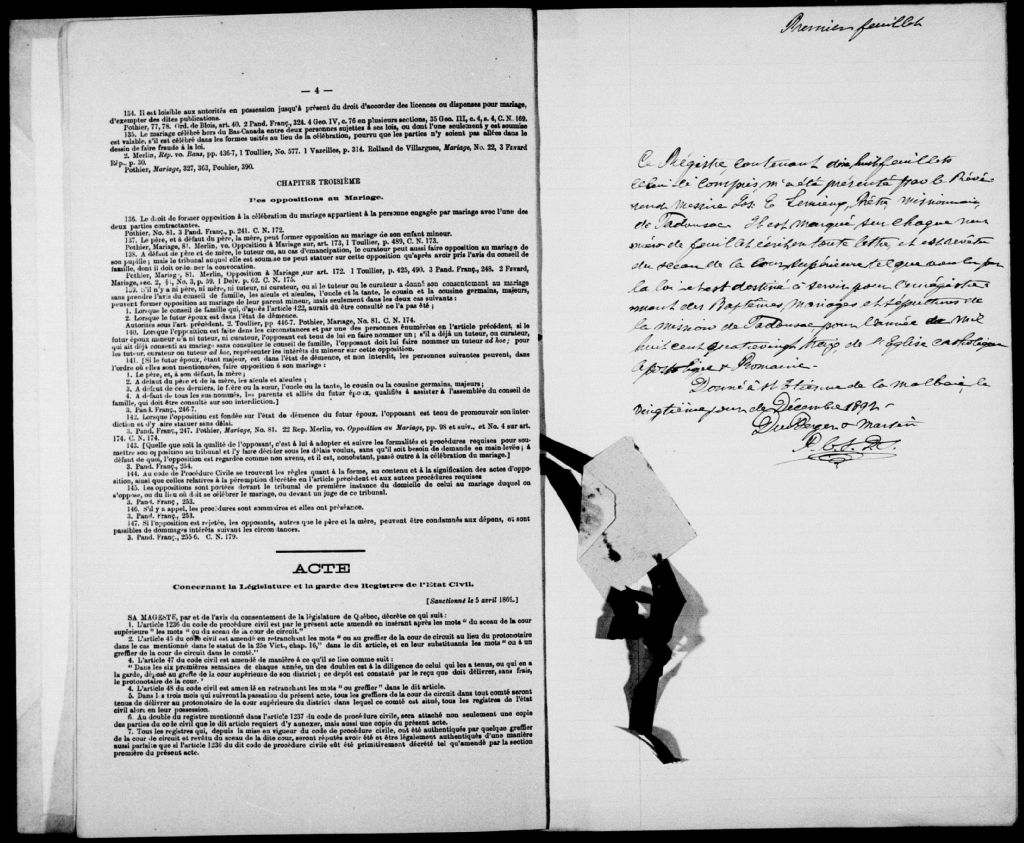 — 4 —
134. Il est loisible aux autorités en possession jusqu'à présent du droit d'accorder des licences ou dispenses pour mariage,
d'exempter des dites publications.
Pothier, 77, 78. Ord. de Blois, art. 40. 2 Pand. Franç., 324. 4 Geo. IV, c. 76 en plusieurs sections, 35 Geo. III, c. 4, s. 4, C. N. 169.
135. Le mariage célébré hors du Bas-Canada entre deux personnes sujettes à ses lois, ou dont l'une seulement y est soumise
est valable, s'il est célébré dans les formes usités au lieu de la célébration, pourvu que les parties n'y soient pas allées dans le
dessin de faire fraude à la loi.
2. Merlin, Rép. vo. Bans, pp. 436-7, 1 Toullier, No. 577. 1 Vazeilles, p. 314. Rolland de Villargues, Mariage, No. 22, 3 Favard
Rép., p. 30.
Pothier, Mariage, 327, 363, Pouhier, 390.
CHAPITRE TROISIÈME
Des oppositions au Mariage.
136. Le droit de former opposition à la célébration du mariage appartient à la personne engagée par mariage avec l'une des
deux parties contractantes.
Pothier, No. 81. 3 Pand. Franç., p. 241. C. N. 172.
137. Le père, et à défaut du père, la mère, peut former opposition au mariage de son enfant mineur.
Pothier, Mariage, 81. Merlin, vo. Opposition à Mariage sur, art. 173, 1 Toullier, p. 489, C. N. 173.
138. A défaut de père et de mère, le tuteur ou, au cas d'émancipation, le curateur peut aussi faire opposition au mariage de
son pupille; mais le tribunal auquel elle est soumise ne peut statuer sur cette opposition qu'après avoir pris l'avis du conseil de
famille, dont il doit ordonner la convocation.
Pothier, Mariage, 81. Merlin, Opposition à Mariage sur art. 172. 1 Toullier, p. 425, 490. 3 Pand. Franç., 248. 2 Favard,
Mariage, sec. 2, § 1, No. 3, p. 59. 1 Delv. p. 62. C. N. 175.
139. S'il n'y a ni père, ni mère, ni tuteur, ni curateur, ou si le tuteur ou le curateur a donné son consentement au mariage
sans prendre l'avis du conseil de famille, les aïeuls et aïeules, l'oncle et la tante, le cousin et la cousine germains, majeurs,
peuvent former opposition au mariage de leur parent mineur, mais seulement dans les deux cas suivants :
1. Lorsque le conseil de famille qui, d'après l'article 122, aurait dû être consulté ne l'a pas été ;
2. Lorsque le futur époux est dans l'état de démence.
Autorités sous l'art. précédent. 2. Toullier, pp. 446-7. Pothier, Mariage, No. 81. C. N. 174.
140. Lorsque l'opposition est faite dans les circonstances et par une des personnes énumérées en l'article précédent, si le
futur époux mineur n'a ni tuteur, ni curateur, l'opposant est tenu de lui en faire nommer un ; s'il a déjà un tuteur, ou curateur,
qui ait déjà consenti au mariage sans consulter le conseil de famille, l'opposant doit lui faire nommer un tuteur ad hoc ; pour
les tuteur, curateur ou tuteur ad hoc, représenter les intérêts du mineur sur cette opposition.
141. [Si le futur époux, étant majeur, est dans l'état de démence, et non interdit, les personnes suivantes peuvent, dans
l'ordre où elles sont mentionnées, faire opposition à son mariage :
1. Le père, et, à son défaut, la mère ;
2. A défaut du père et de la mère, les aïeuls et aïeules ;
3. A défaut de ces derniers, le frère ou la sœur, l'oncle ou la tante, le cousin ou la cousine germains, majeurs ;
4. A défaut de tous les sus nommés, les parents et alliés du futur époux, qualifiés à assister à l'assemblée du conseil de
famille, qui doit être consulté sur son interdiction.]
3. Pand. Franç., 246-7.
142. Lorsque opposition est fondée sur l'état de démence du futur époux, l'opposant est tenu de promouvoir son inter-
diction et d'y faire statuer sans délai.
3. Pand. Franç., 247. Pothier, Mariage, No. 81. 22 Rep. Merlin, vo. Opposition au Mariage, pp. 98 et suiv., et No. 4 sur art.
174. C. N. 174.
143. [Quelle que soit la qualité de l'opposant, c'est à lui à adopter et suivre les formalités et procédures requises pour sou-
mettre son opposition au tribunal et l'y faire décider sous les délais voulus, sans qu'il soit besoin de demande en main-levée ; à
défaut de quoi, l'opposition est regardée comme non avenu, et il est, nonobstant, passé outre à la célébration du mariage.]
3. Pand. Franç., 254.
144. Au code de Procédure Civile se trouvent les règles quant à la forme, au contenu et à la signification des actes d'oppo-
sition, ainsi que celles relatives à la péremption décrétée en l'article précédent et aux autres procédures requises
145. Les oppositions sont portées devant le tribunal de première instance du domicile de celui au mariage duquel on
s'oppose, ou du lieu où doit se célébrer le mariage, ou devant un juge de ce tribunal.
3. Pand. Franç., 253.
146. S'il y a appel, les procédures sont sommaires et elles ont préséance.
3. Pand. Franç., 253.
147. Si l'opposition est rejetée, les opposants, autres que le père et la mère, peuvent être condamnés aux dépens, et sont
passibles de dommages intérêts suivant les circonstances.
3. Pand. Franç., 255-6. C. N. 179.
ACTE
Concernant la Législature et la garde des Registres de l'Etat Civil.
[Sanctionné le 5 avril 1869.]
SA MAGESTÉ, par et de l'avis du consentement de la législature de Québec, décrète ce qui suit :
1. L'article 1236 du code de procédure civil est par le présent acte amendé en insérant après les mots "du sceau de la cour
supérieure" les mots "ou du sceau de la cour de circuit."
2. L'article 45 du code civil est amendé en retranchant les mots "ou au greffier de la cour de circuit au lieu du protonotaire
dans le cas mentionné dans le statut de la 25e Vict., chap. 16," dans le dit article, et en leur substituants les mots "ou à un
greffier de la cour de circuit dans le comté."
4. L'article 47 du code civil est amendé de manière à ce qu'il se lise comme suit :
"Dans les six premières semaines de chaque année, un des doubles est à la diligence de celui qui les a tenus, ou qui en a
la garde, déposé au greffe de la cour supérieure de son district ; ce dépôt est constaté par le reçu que doit délivrer, sans frais,
le protonotaire de la cour."
4. L'article 48 du code civil est amendé en retranchant les mots "ou greffier" dans le dit article.
5. Dans les trois mois qui suivront la passation du présent acte, tous les greffiers de la cour de circuit dans tout comté seront
tenus de délivrer au protonotaire de la cour supérieure du district dans lequel ce comté est situé, tous les registres de l'état
civil alors en leur possession.
6. Au double du registre mentionné dans l'article 1237 du code de procédure civile, sera attaché non seulement une copie
des parties du code civil que le dit article requiert d'y annexer, mais aussi une copie du présent acte.
7. Tous les registres qui, depuis la mise en vigueur du code de procédure civile, ont été authentiqués par quelque greffier
de la cour de circuit et revêtu du sceau de la dite cour, seront réputés avoir été et être légalement authentiqués d'une manière
aussi parfaite que si l'article 1236 du dit code de procédure civile eût été primitivement décrété tel qu'amendé par la section
première du présent acte.
Premier feuillet
Ce Régistre, contenant dix huit feuillets
celui-ci compris m'a été présenté par le Révé-
rend Messire Ges. E. Lemieux, Ptre missionnaire
de Tadousac. Il est marqué sur chaque
de feuillet écrit en toute lettre, et est revêtu
du sceau de la cour supérieure tel que
la loi et est destiné à servir pour l'enrégistre-
ment des Baptêmes, Mariages et Sépultures de
la mission de Tadousac pour l'année mil
huit cent quatrevingt treize de l'Eglise catholique
apostolique & Romaine.
Donné à St Etienne de la Malbaie, le
vingtième jour de Décembre 1892
DuBerger &
P. C. S. D.